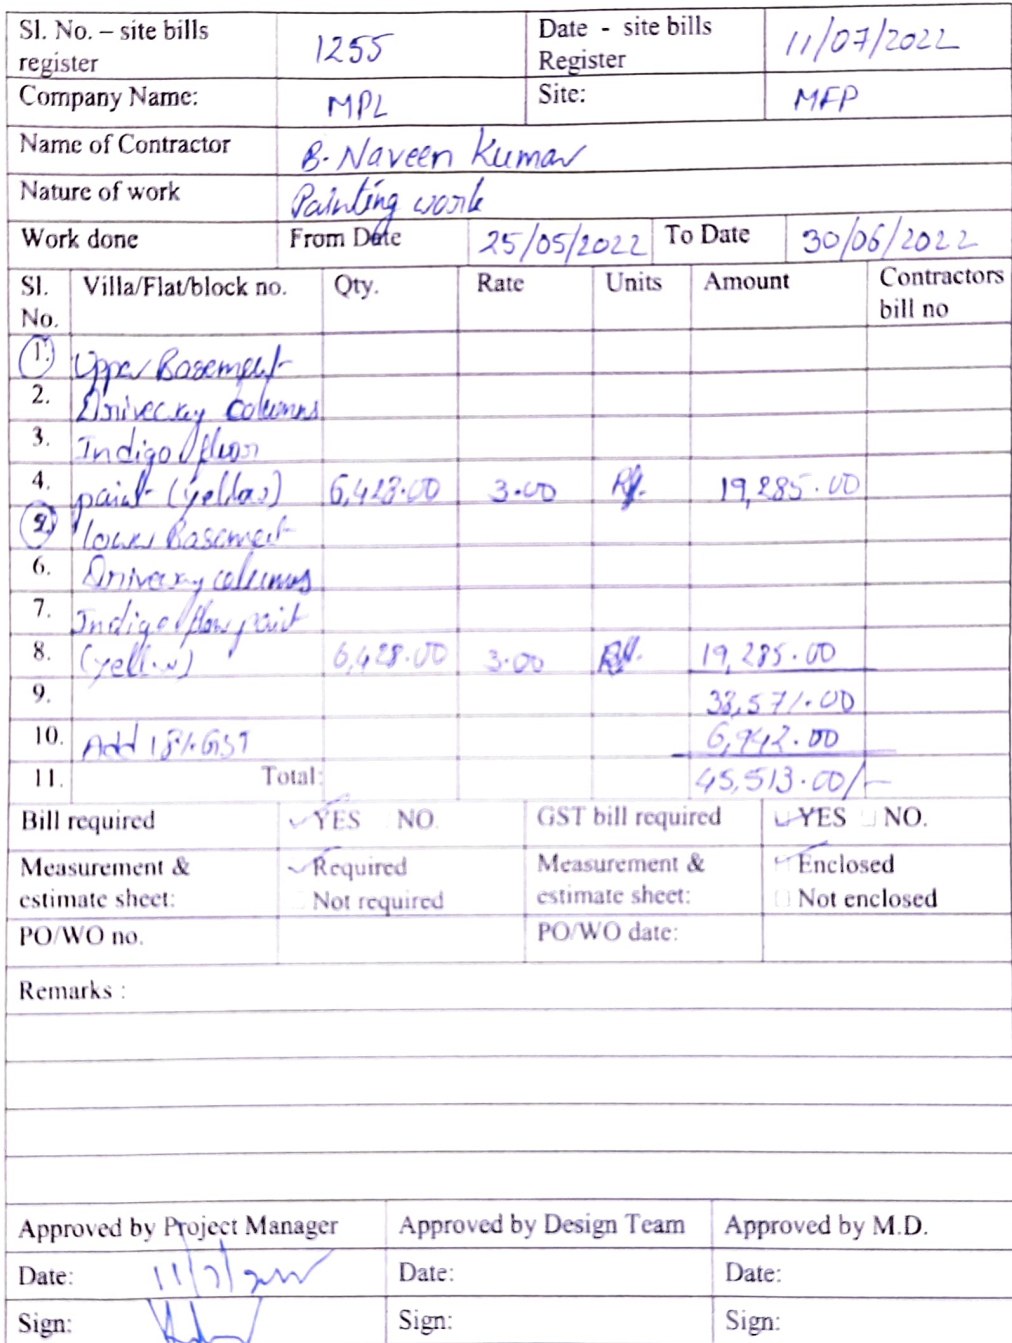 Sl. No. – site bills register 1255 Date - site bills Register 11/07/2022
Company Name: MPL Site: MFP
Name of Contractor B. Naveen Kumar
Nature of work Painting work
Work done From Date 25/05/2022 To Date 30/06/2022
Sl. No. Villa/Flat/block no. Qty. Rate Units Amount Contractors bill no
1. Upper Basement
2. Driveway columns
3. Indigo floor
4. paint (yellow) 6,428.00 3.00 19,285.00
2. lower Basement
6. Driveway columns
7. Indigo floor paint
8. (yellow) 6,428.00 3.00 19,285.00
9. 38,571.00
10. Add 18% GST 6,942.00
11. Total: 45,513.00/-
Bill required YES NO. GST bill required YES NO.
Measurement & estimate sheet: Required Not required Measurement & estimate sheet: Enclosed Not enclosed
PO/WO no. PO/WO date:
Remarks :
Approved by Project Manager Approved by Design Team Approved by M.D.
Date: 11/7/2022 Date: Date:
Sign: Sign: Sign: